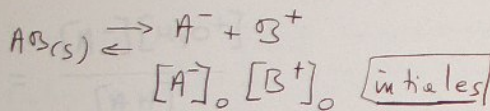 AB(s) ⇌ A⁻ + B⁺
[A⁻]₀ [B⁺]₀ intiales